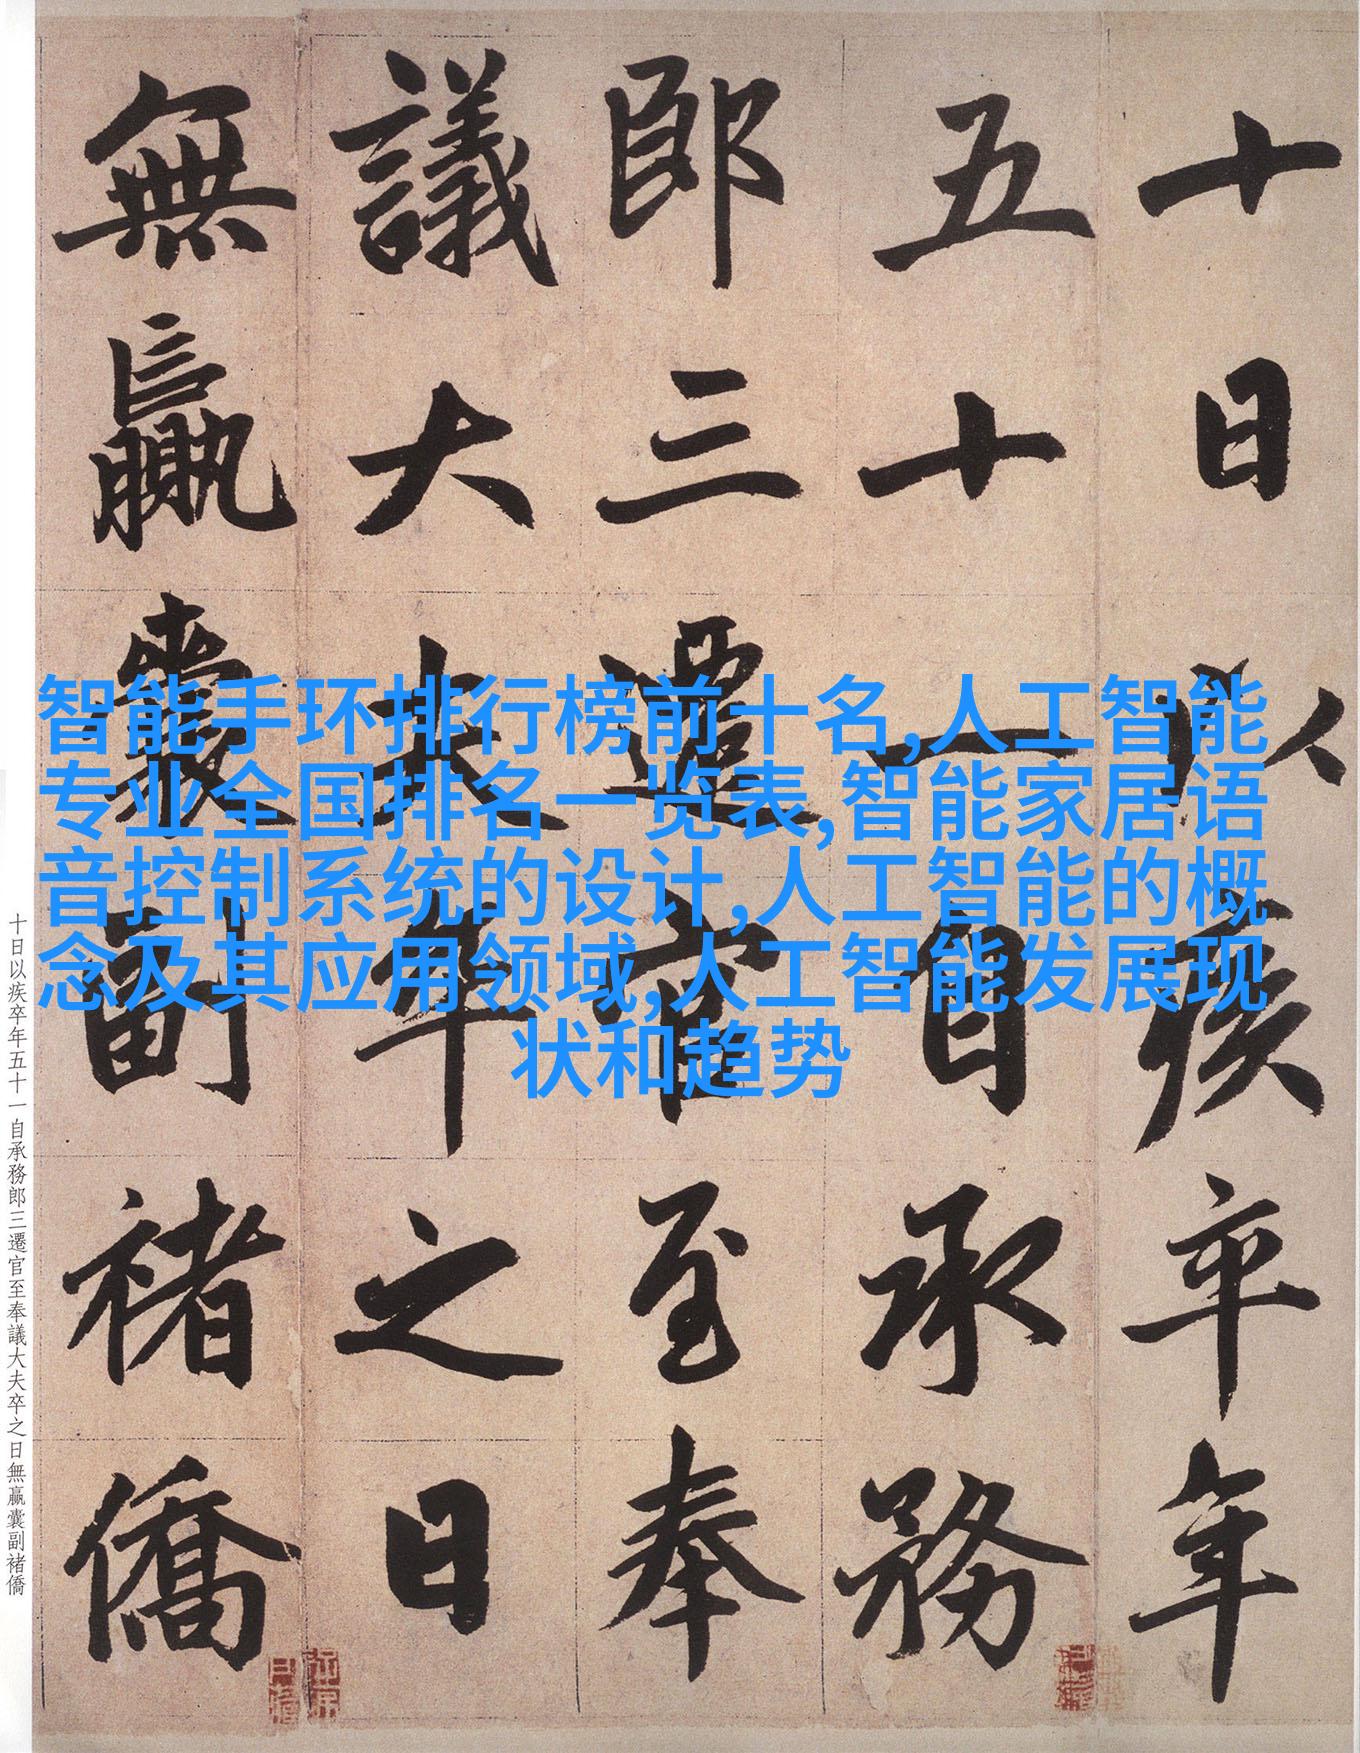 十日以疾卒年
五十一自承務
郎三遷官至奉
議大夫卒之日
無贏囊副褚僑
智能手环排行榜前十名,人工智能
专业全国排名一览表,智能家居语
音控制系统的设计,人工智能的概
念及其应用领域,人工智能发展现
状和趋势
十日以疾卒年五十一自承務郎三遷官至奉議大夫卒之日無贏囊副褚僑